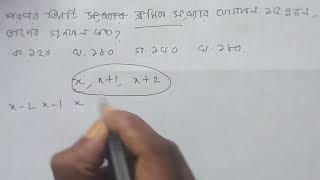 পরপর তিনটি সংখ্যার ক্রমিক সংখ্যার যোগফল ২৪ হলে,
তাদের গুনফল কত?
ক. ২২০ খ. ২৪০ গ. ২৫০ ঘ. ২৮০
x, x+1, x+2
x-2 x-1 x